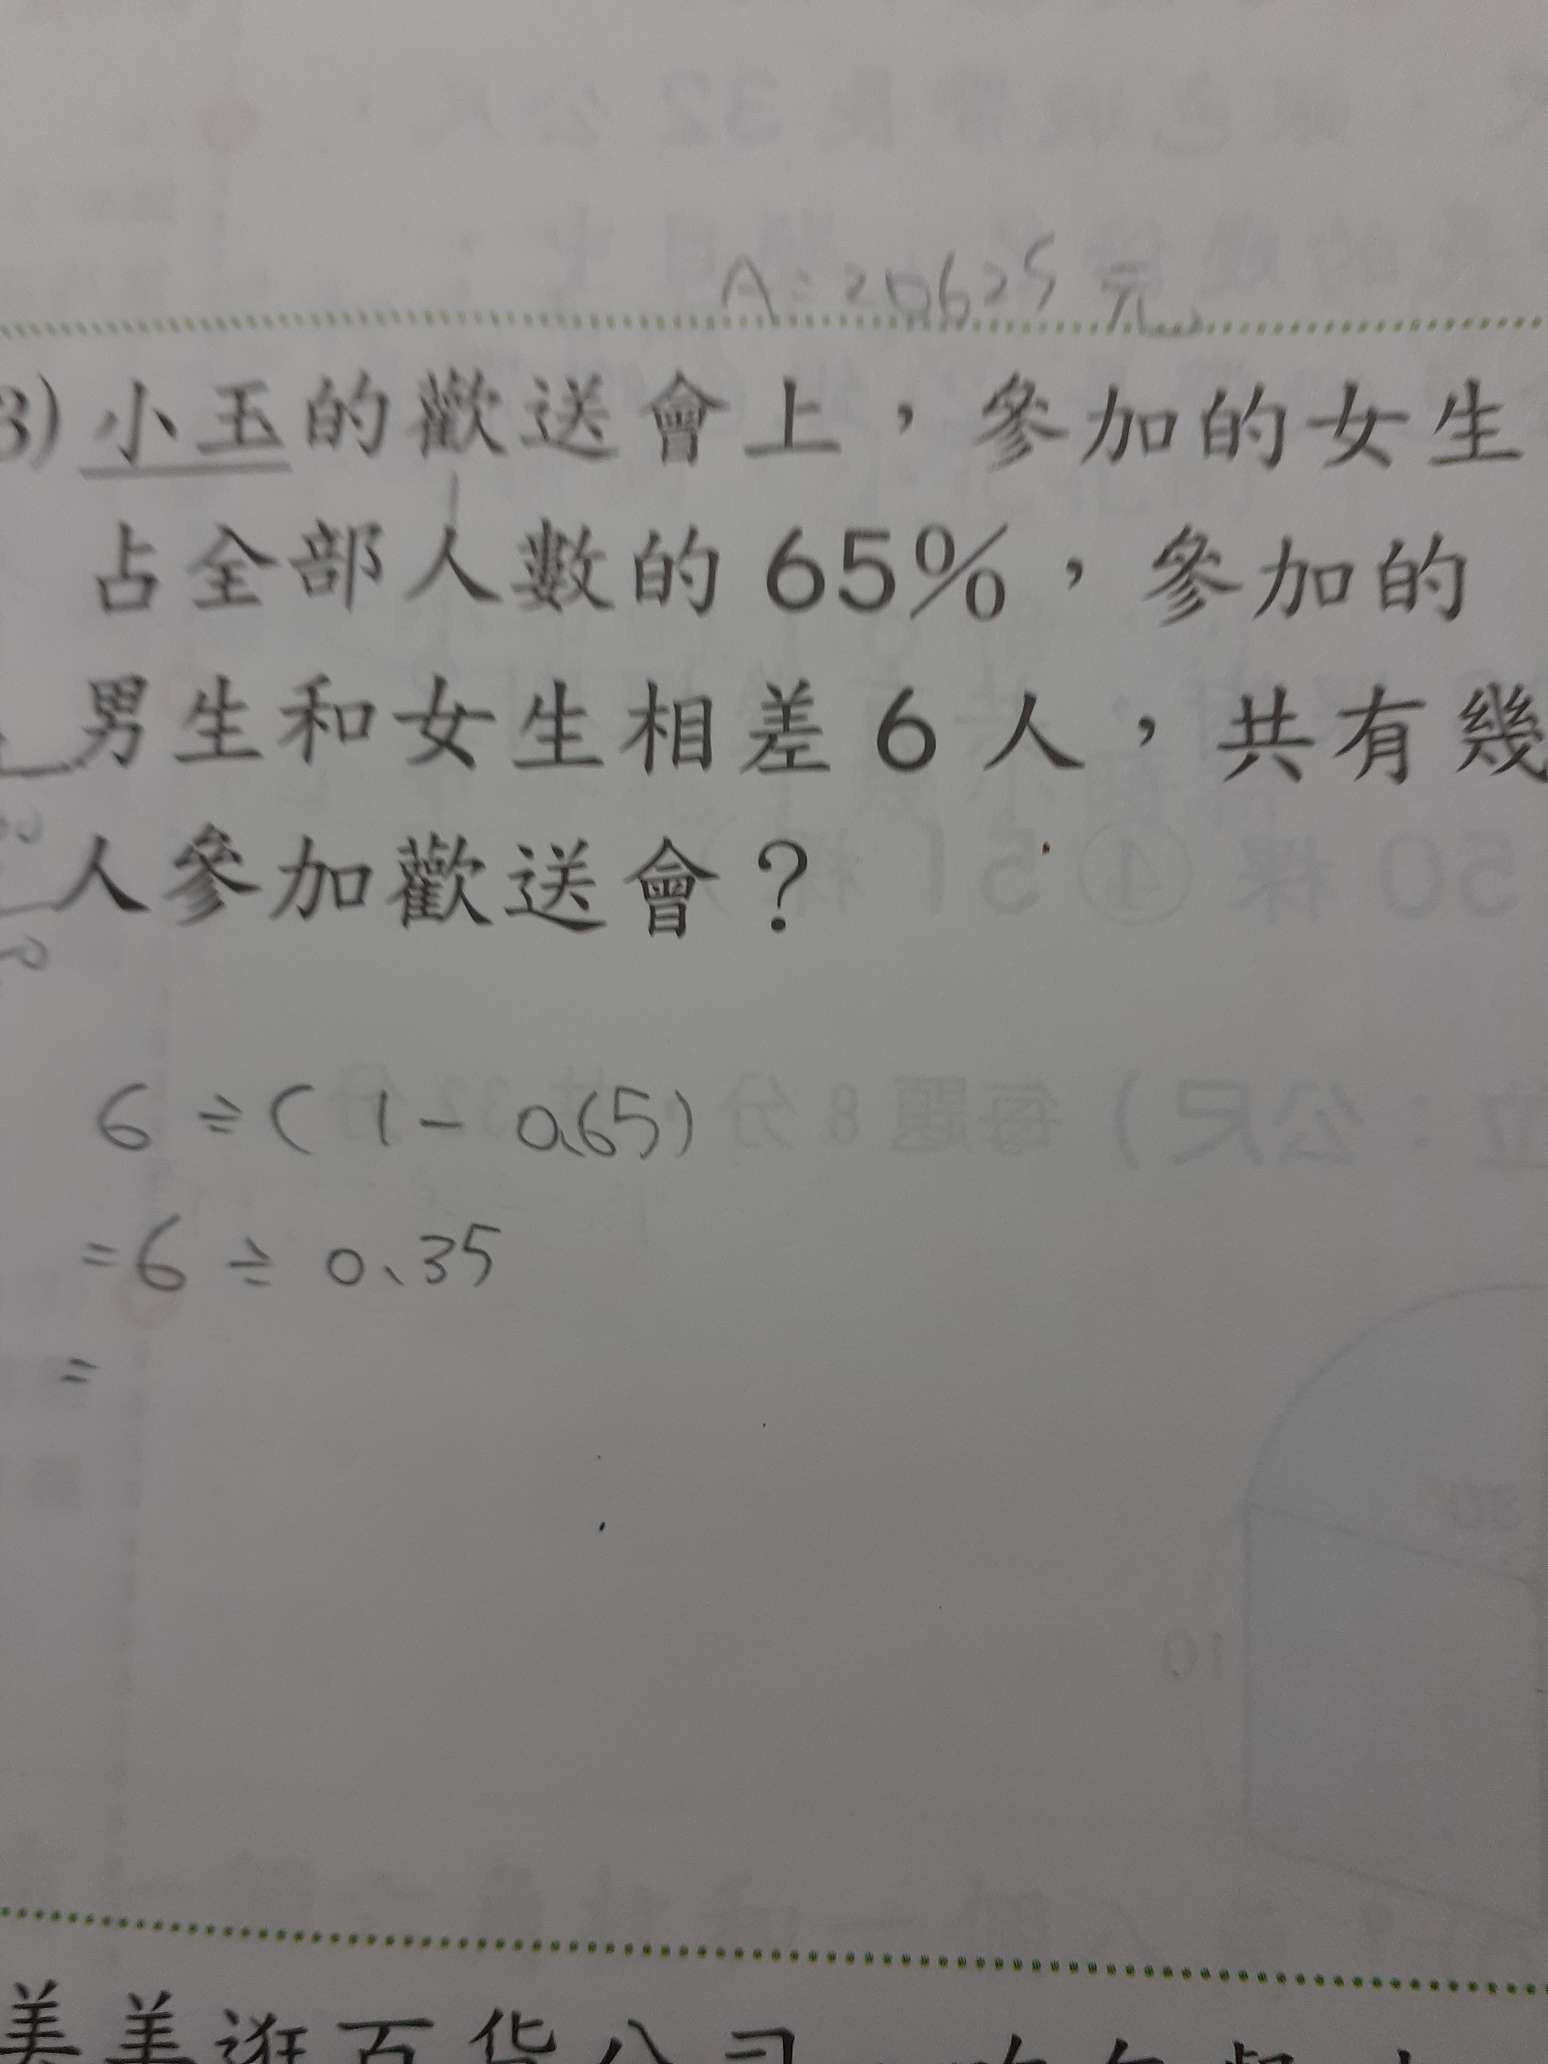 A:20625元
3) 小玉的歡送會上，參加的女生
占全部人數的 65%，參加的
男生和女生相差 6 人，共有幾
人參加歡送會？
6÷(1-0.65)
=6÷0.35
=
美美逛百貨公司